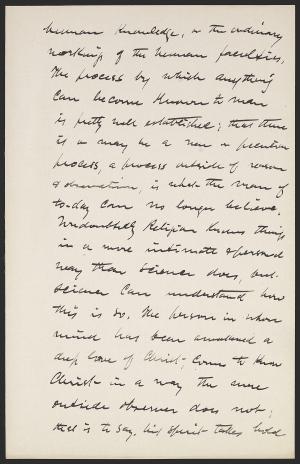 human knowledge, or the ordinary
working of the human faculties.
The process by which anything
can become known to man
is pretty well established; that there
is or may be a new or peculiar
process, a process outside of reason
& observation, is what the man of
to-day can no longer believe.
Undoubtedly Religion knows things
in a more intimate & personal
way than Science does, but
Science can understand how
this is so. The person in whose
mind has been awakened a
deep love of Christ, come to know
Christ in a way the mere
outside observer does not;
that is to say, his spirit takes hold